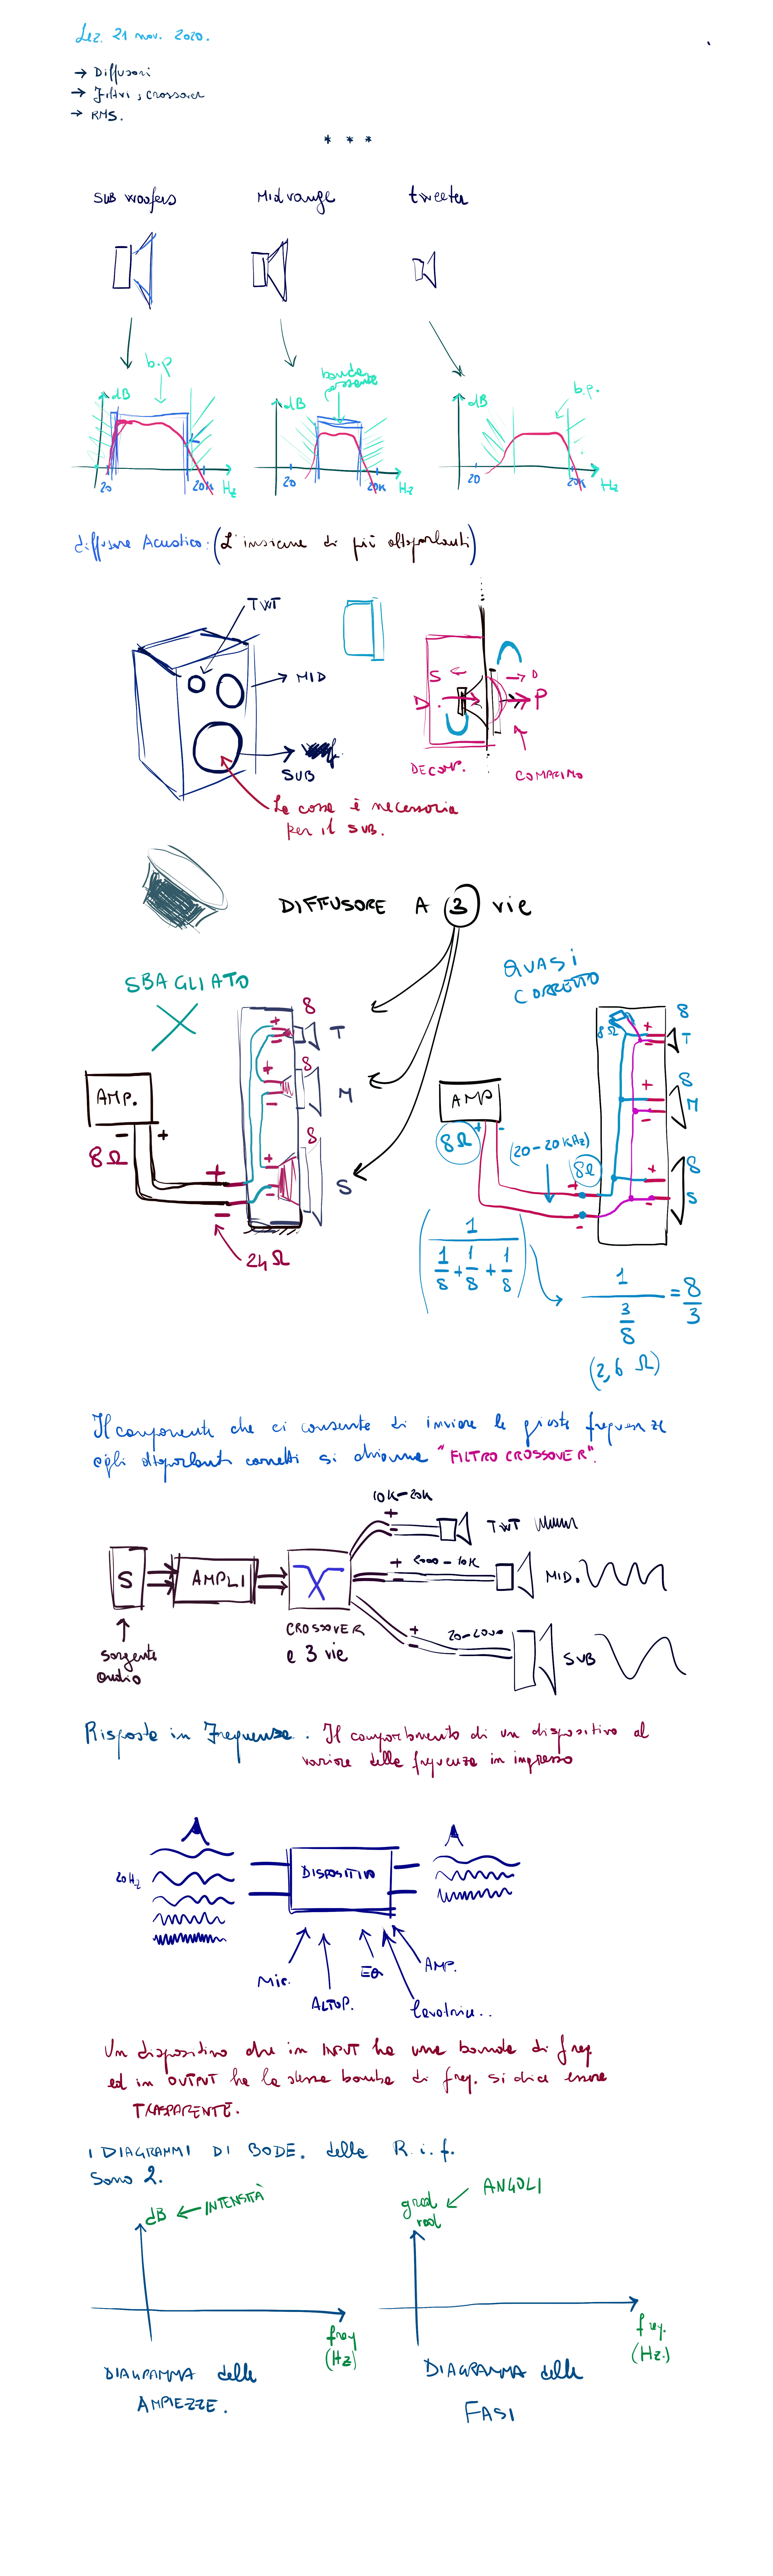 Lez. 21 nov. 2020.
→ Diffusori
→ Filtri, crossover
→ RMS.
* * *
SUB woofers
Mid range
tweeter
b.p
banda passante
b.p.
dB
dB
dB
20
20K
Hz
20
20K
Hz
20
20K
Hz
diffusore Acustico: (L'insieme di più altoparlanti)
TWT
MID
SUB
S
D
D
P
DECOMP.
La cassa è necessaria
per il SUB.
DIFFUSORE A 3 vie
SBAGLIATO
QUASI
CORRETTO
AMP.
8Ω
- +
+
-
24Ω
8
+
-
T
8
+
-
M
8
+
-
S
AMP
8Ω
+ -
(20-20KHz)
8Ω
+
-
8Ω
8
+
-
T
8
+
-
M
8
+
-
S
1
1/8 + 1/8 + 1/8
1
3/8
= 8/3
(2,6 Ω)
Il componente che ci consente di inviare le giuste frequenze
agli altoparlanti corretti si chiama "FILTRO CROSSOVER".
S
AMPLI
CROSSOVER
a 3 vie
sorgente
audio
10K-20K
+
-
TWT
+ 2000-10K
-
MID.
+ 20-2000
-
SUB
Risposta in Frequenza. Il comportamento di un dispositivo al
variare della frequenza in ingresso
20Hz
DISPOSITIVO
Mic.
ALTOP.
EQ
AMP.
Un dispositivo che in INPUT ha una banda di freq
ed in OUTPUT ha la stessa banda di freq. si dice essere
TRASPARENTE.
I DIAGRAMMI DI BODE. della R.i.f.
Sono 2.
dB ← INTENSITÀ
grad
rad
← ANGOLI
freq
(Hz)
freq.
(Hz.)
DIAGRAMMA delle
AMPIEZZE.
DIAGRAMMA delle
FASI